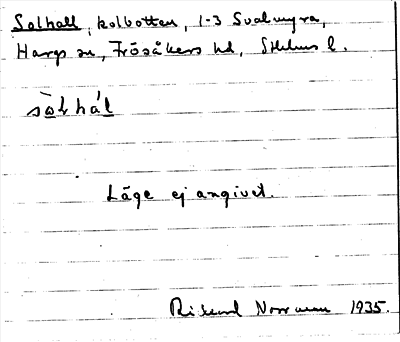 Solhall, kolbotten, 1-3 Svalmyra,
Hargs sn, Frösåkers hd, Sthlms l.
sòlhál
Läge ej angivet.
Rikard Norrman 1935.